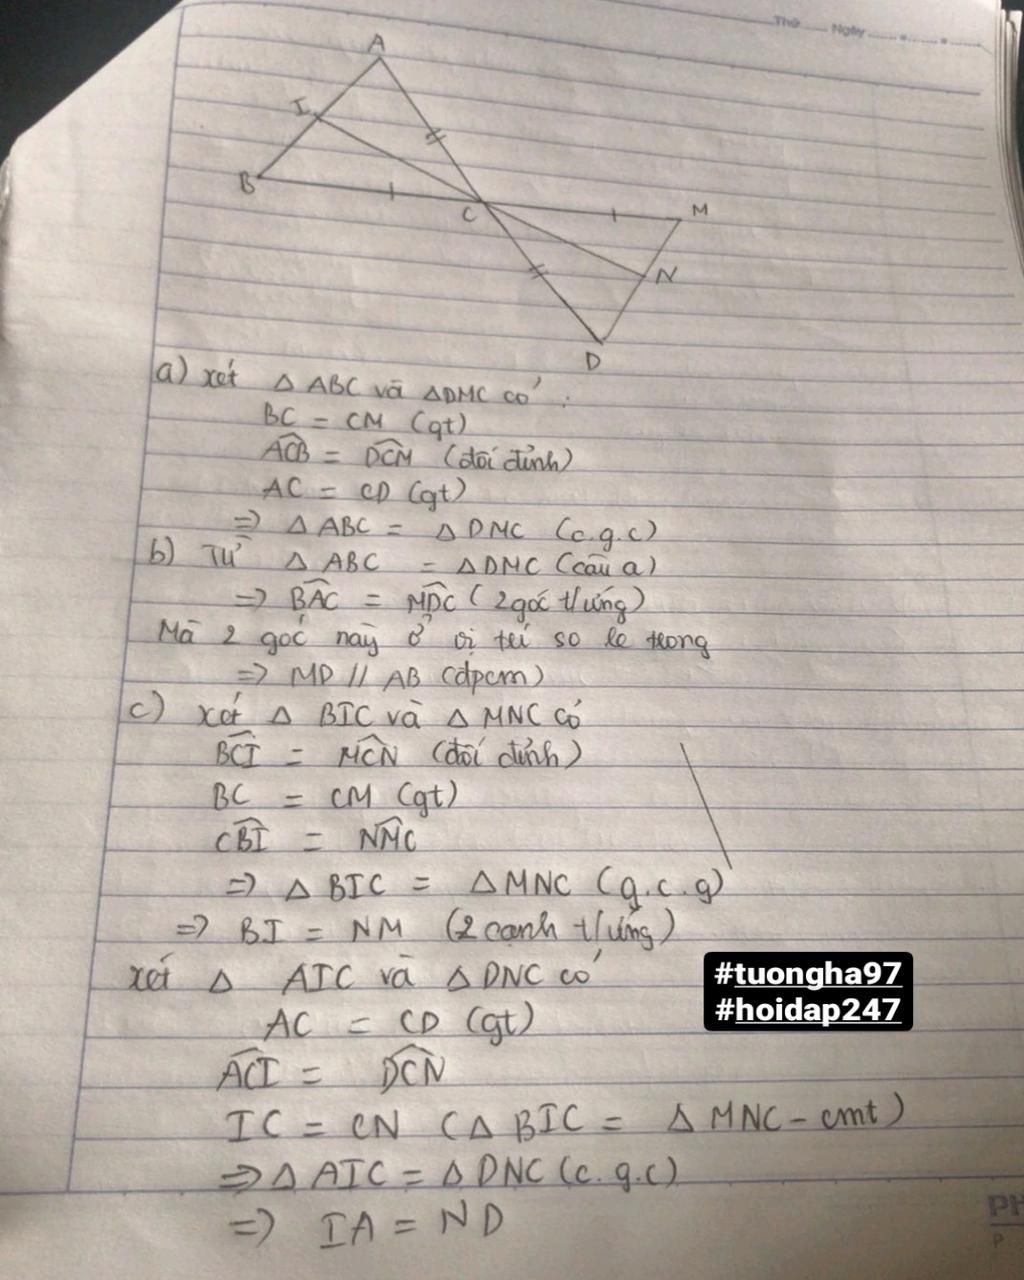 Thứ ...... Ngày ......
A
I
B
C
M
N
D
a) xét △ ABC và △DMC có :
BC = CM (gt)
ACB̂ = DCM̂ (đối đỉnh)
AC = CD (gt)
=> △ ABC = △ DMC (c.g.c)
b) Từ △ ABC = △DMC (câu a)
=> BAĈ = MDĈ (2góc t/ứng)
Mà 2 góc này ở vị trí so le trong
=> MD // AB (đpcm)
c) xét △ BIC và △ MNC có
BCÎ = MCN̂ (đối đỉnh)
BC = CM (gt)
CBÎ = NMĈ
=> △ BIC = △MNC (g.c.g)
=> BI = NM (2 cạnh t/ứng)
xét △ AIC và △ DNC có
AC = CD (gt)
ACÎ = DCN̂
IC = CN (△ BIC = △ MNC - cmt)
=> △ AIC = △ DNC (c.g.c)
=> IA = ND
#tuongha97
#hoidap247
PH
P